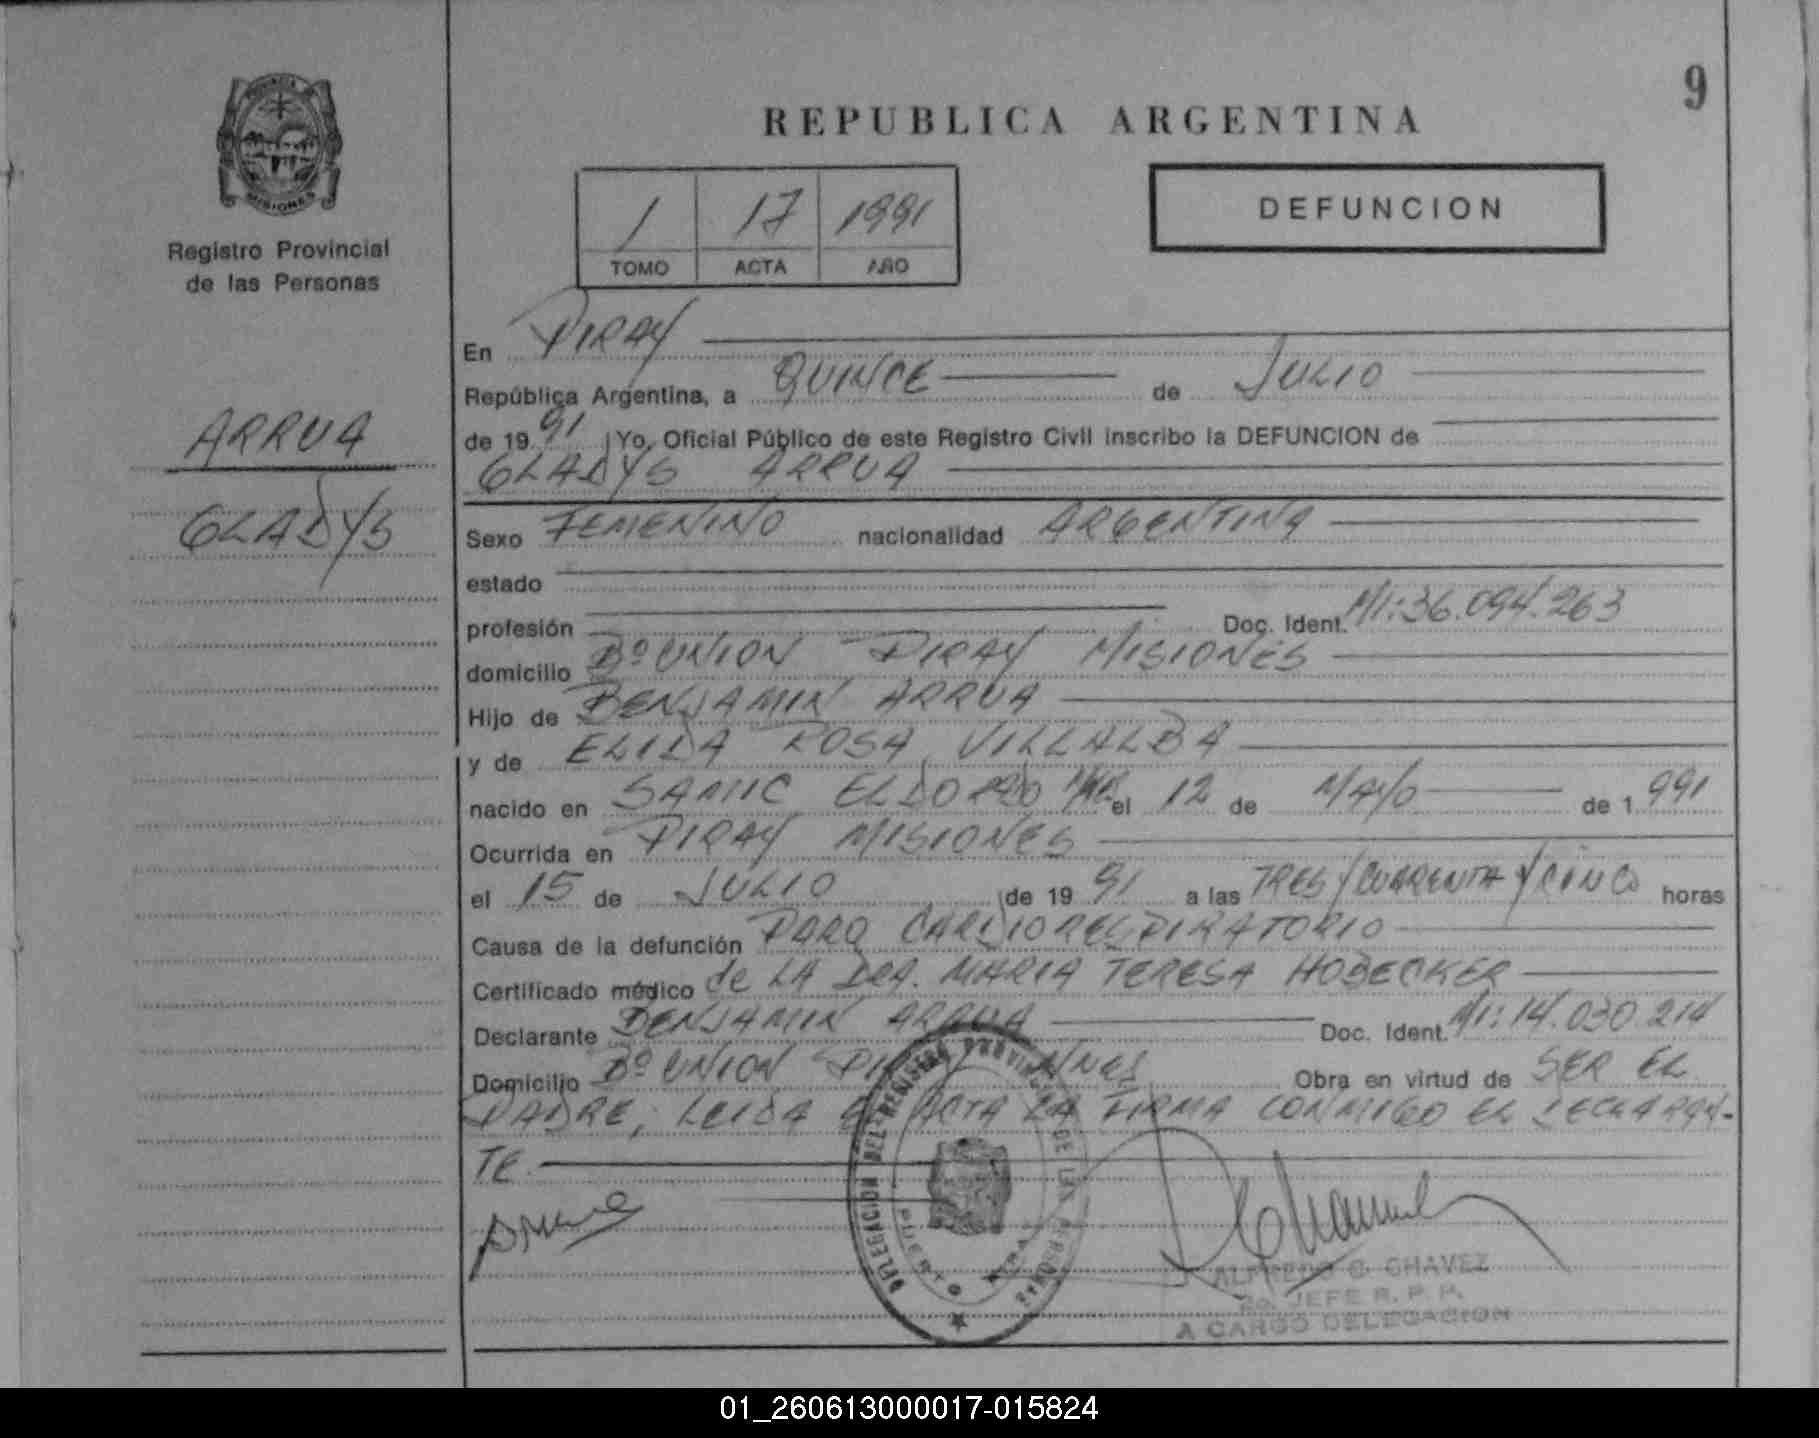 9
REPUBLICA ARGENTINA
PROVINCIA DE
MISIONES
Registro Provincial
de las Personas
1 17 1991
TOMO ACTA AÑO
DEFUNCION
ARRUA
GLADYS
En PIRAY
República Argentina, a QUINCE de JULIO
de 19 91 Yo, Oficial Público de este Registro Civil inscribo la DEFUNCION de
GLADYS ARRUA
Sexo FEMENINO nacionalidad ARGENTINA
estado
profesión Doc. Ident. MI: 36.094.263
domicilio Bº UNION PIRAY MISIONES
Hijo de BENJAMIN ARRUA
y de ELIDA ROSA VILLALBA
nacido en SAMIC ELDORADO el 12 de MAYO de 1 991
Ocurrida en PIRAY MISIONES
el 15 de JULIO de 19 91 a las TRES Y CUARENTA Y CINCO horas
Causa de la defunción PARO CARDIORESPIRATORIO
Certificado médico de LA DRA. MARIA TERESA HOBECKER
Declarante BENJAMIN ARRUA Doc. Ident. MI: 14.030.214
Domicilio Bº UNION PIRAY MNES Obra en virtud de SER EL
PADRE, LEIDA EL ACTA LA FIRMA CONMIGO EL DECLARAN-
TE
DELEGACION DEL REGISTRO PROVINCIAL DE LAS PERSONAS
PUERTO PIRAY
ALFREDO G. CHAVEZ
2o. JEFE R. P. P.
A CARGO DELEGACION
01_260613000017-015824